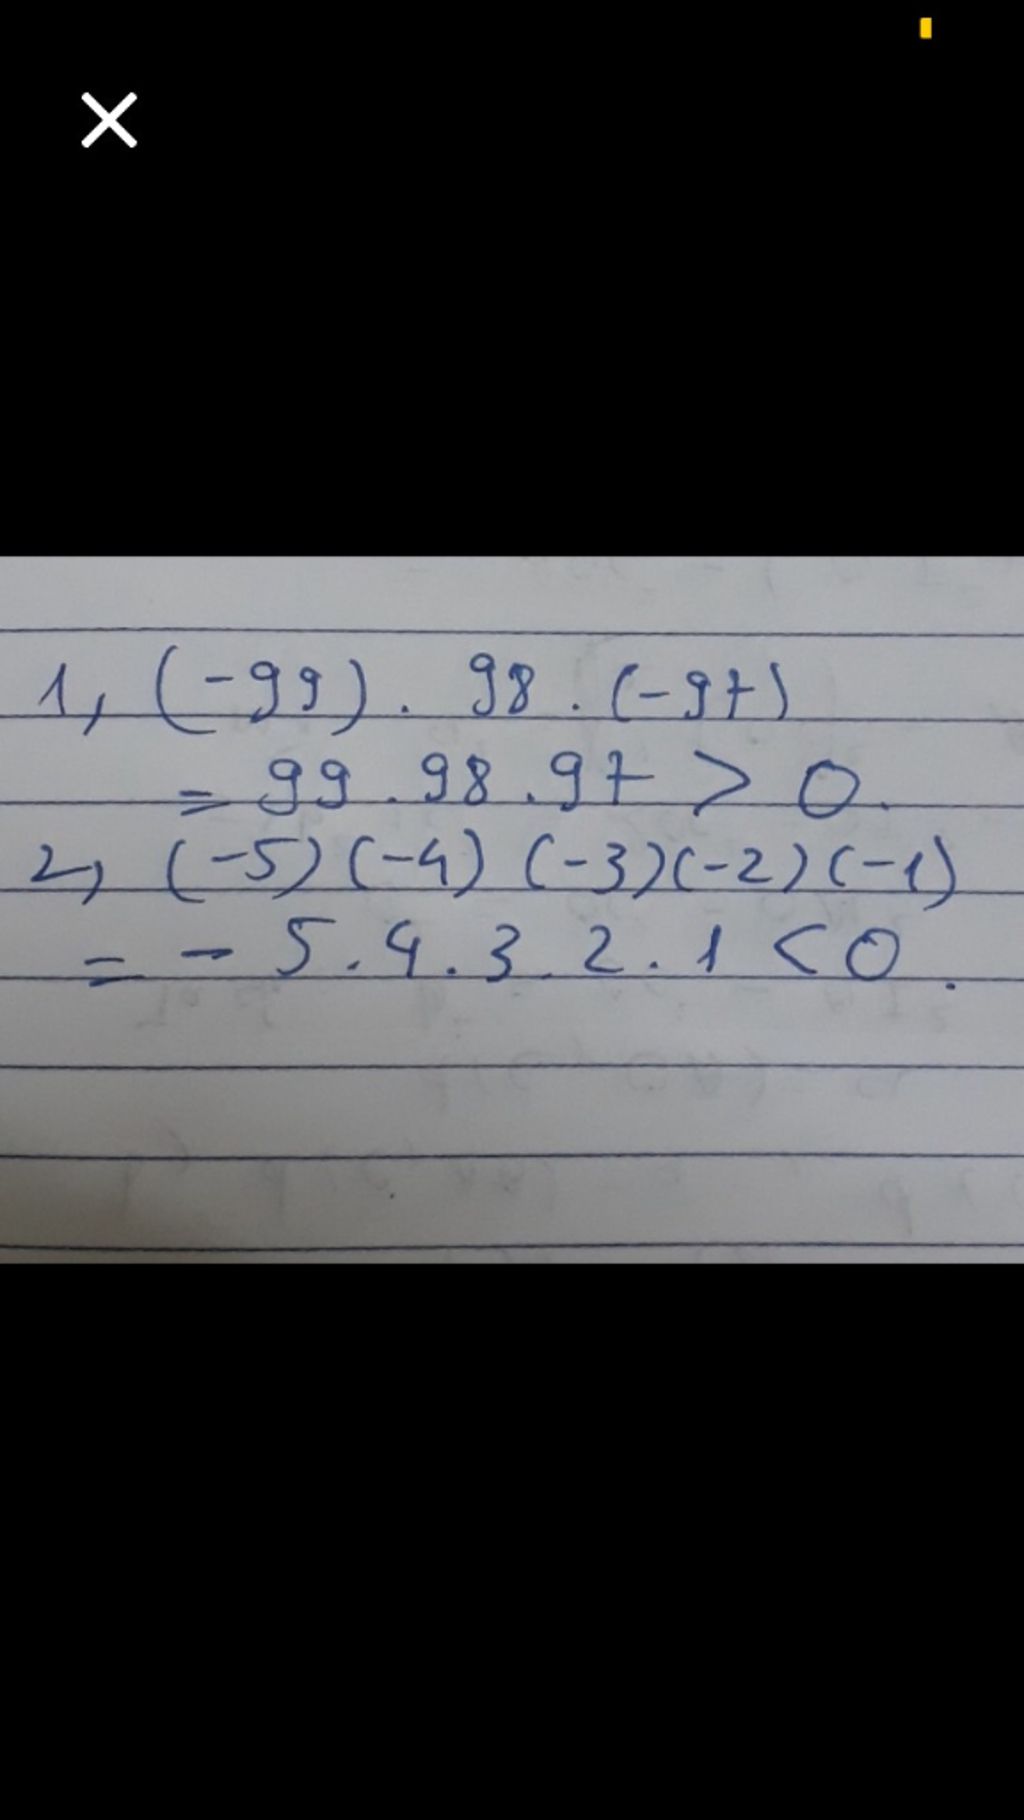 1, (-99) . 98 . (-97)
= 99 . 98 . 97 > 0.
2, (-5) (-4) (-3) (-2) (-1)
= - 5 . 4 . 3 . 2 . 1 < 0.